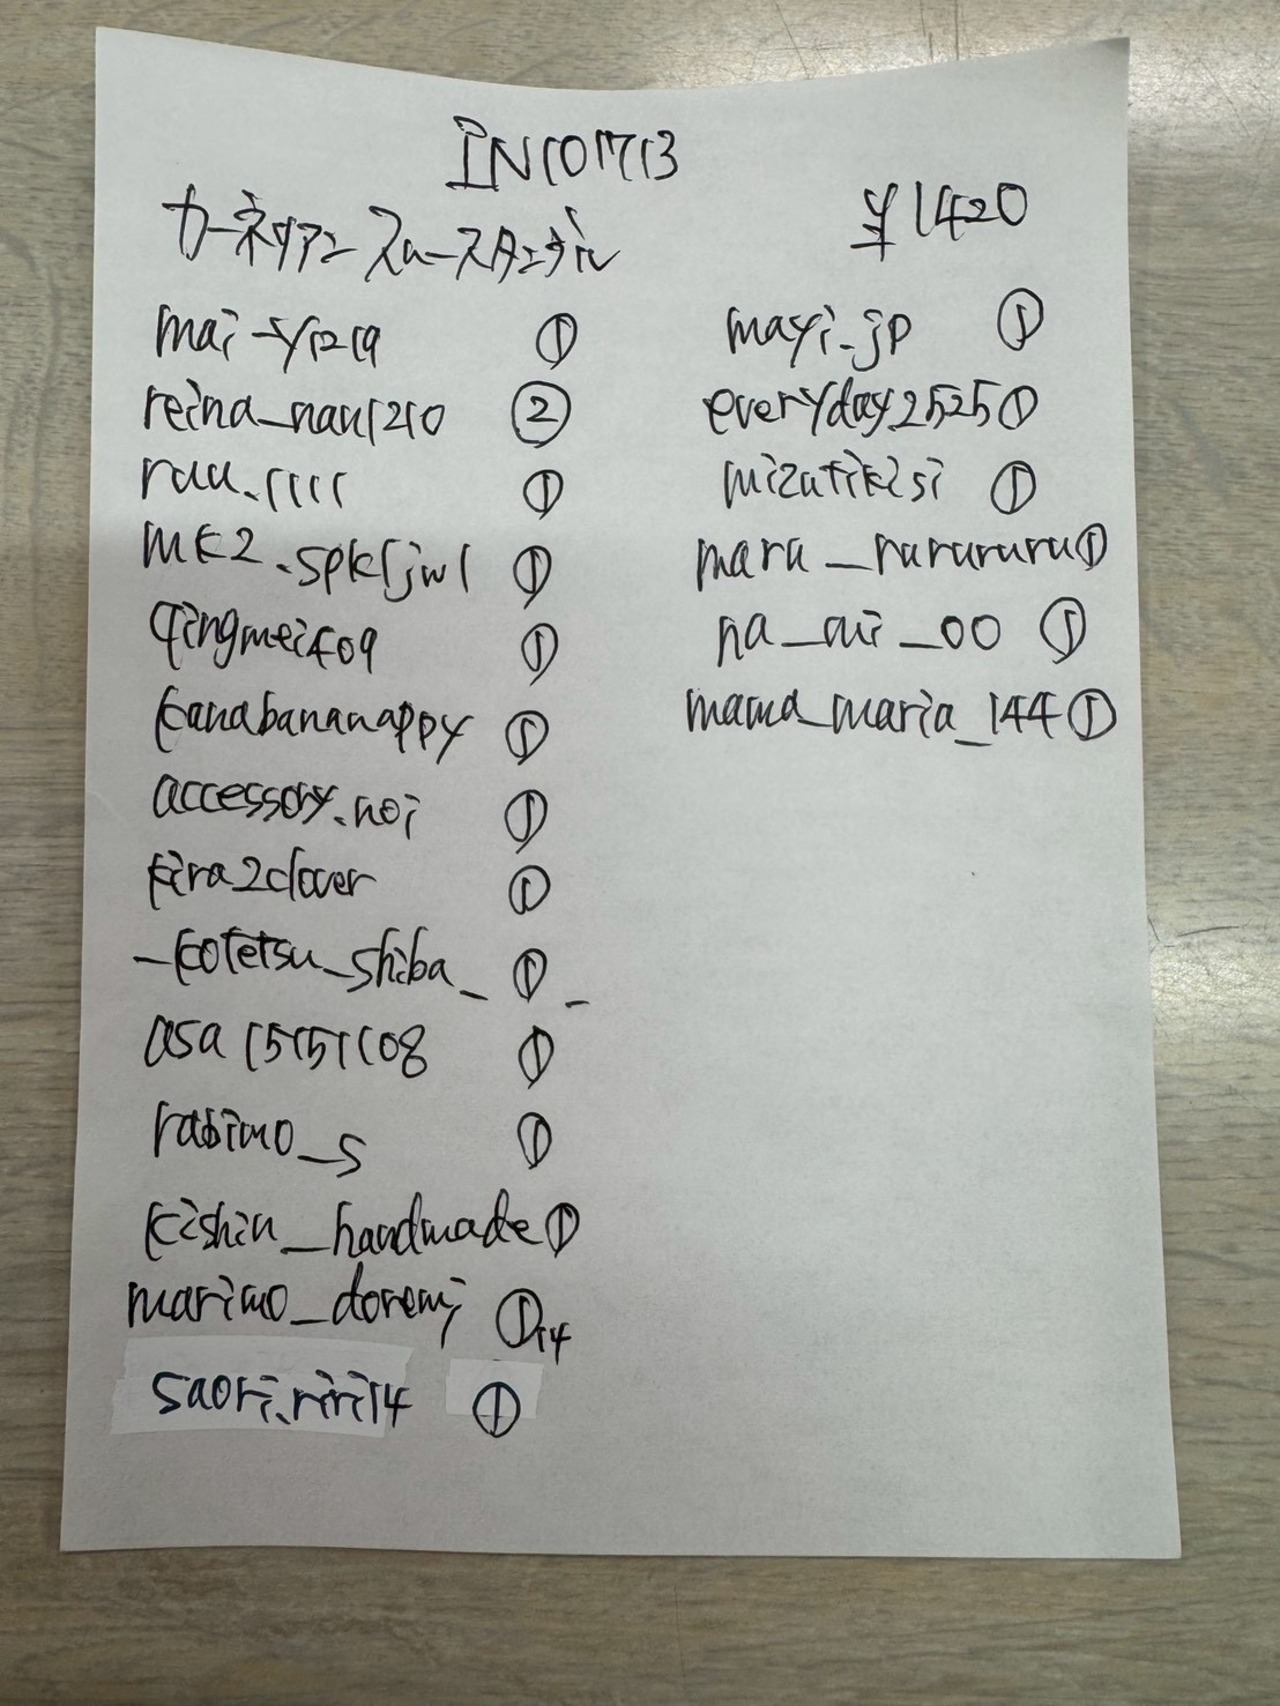 IN101713
カーネリアンスムースタンブル
¥1420
mai_y1219 ①
reina_nau1210 ②
ruu.1111 ①
mk2.spkljwl ①
qingmei409 ①
kanabananappy ①
accessory.noi ①
kira2clover ①
_kotetsu_shiba_ ① _
asa15151108 ①
rabimo_s ①
kishin_handmade ①
marimo_doremi ① 14
saori.riri14 ①
mayi.jp ①
everyday.2525 ①
mizutikisi ①
maru_rurururu ①
na_mi_00 ①
mama_maria_144 ①